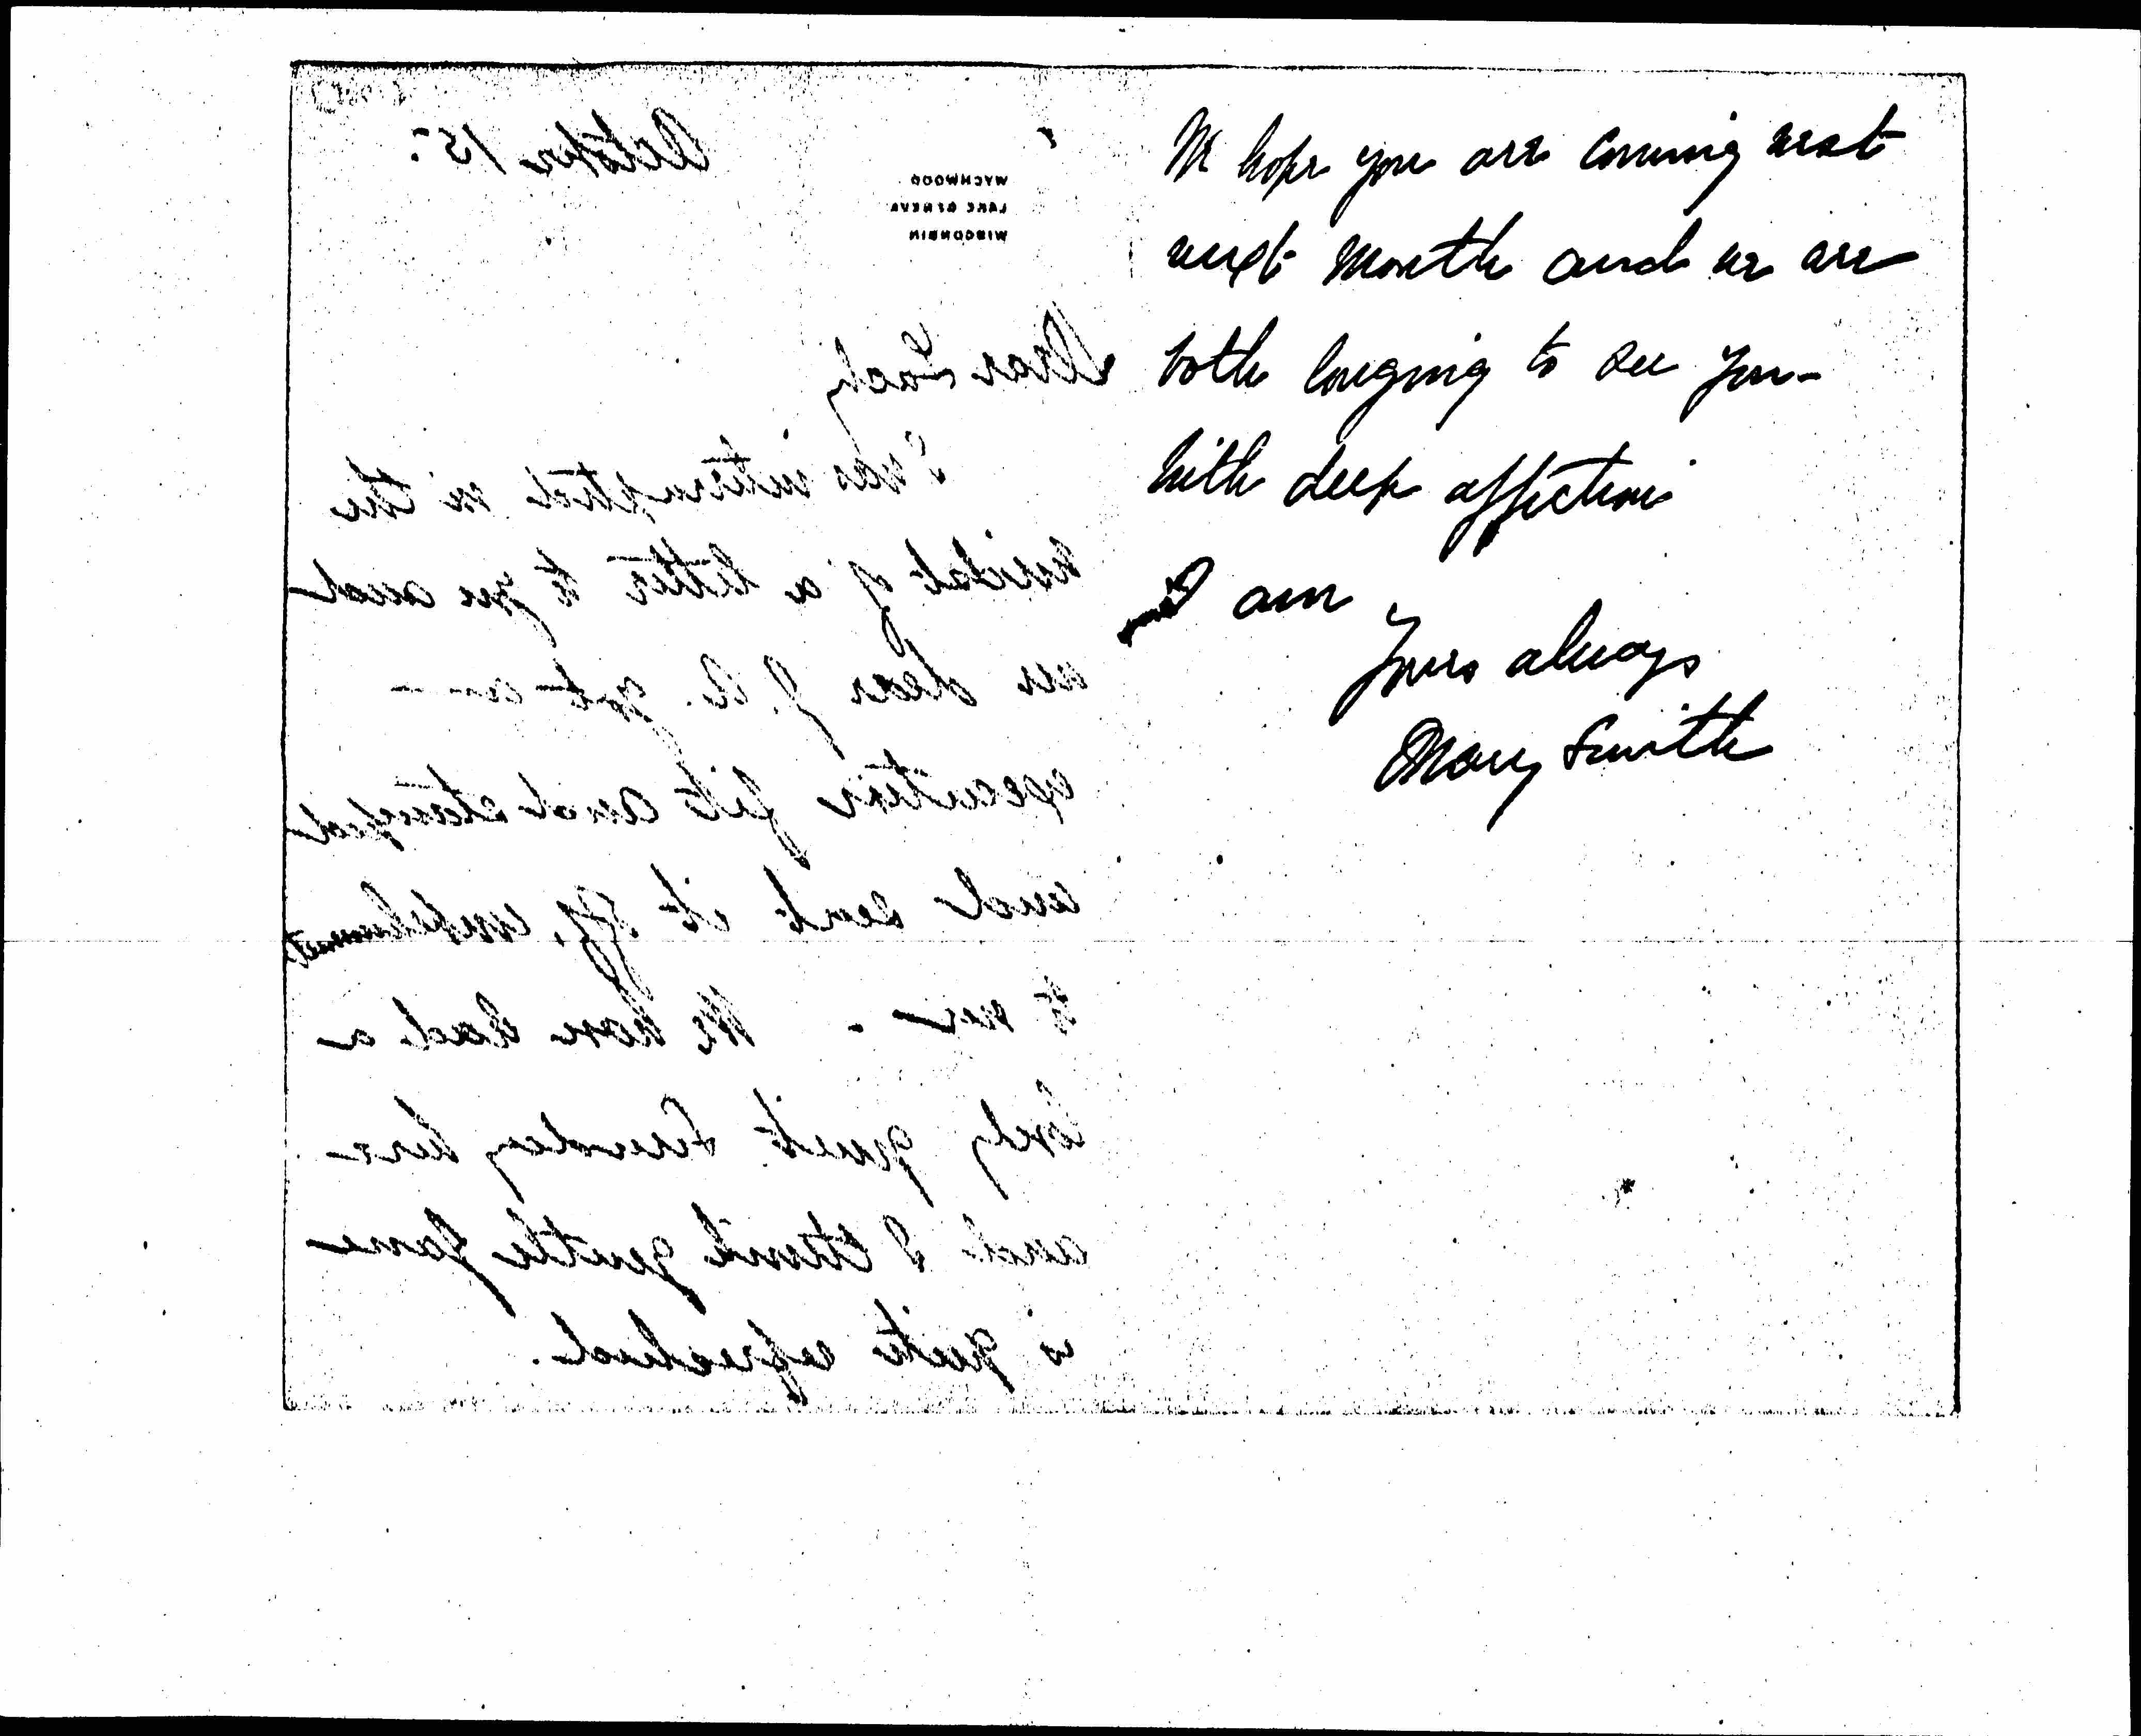 October 15th
WYCHWOOD
LAKE GENEVA
WISCONSIN
Dear Lady
I was interrupted in the
midst of a letter to you and
dear J. A. got an
fit and stamped
and sent it off,
to me - We have had a
lovely quiet Sunday here
and I think gentle Jane
is quite refreshed.
We hope you are coming west
next month and we are
both longing to see you-
With deep affection
I am
Yours always
Mary Smith